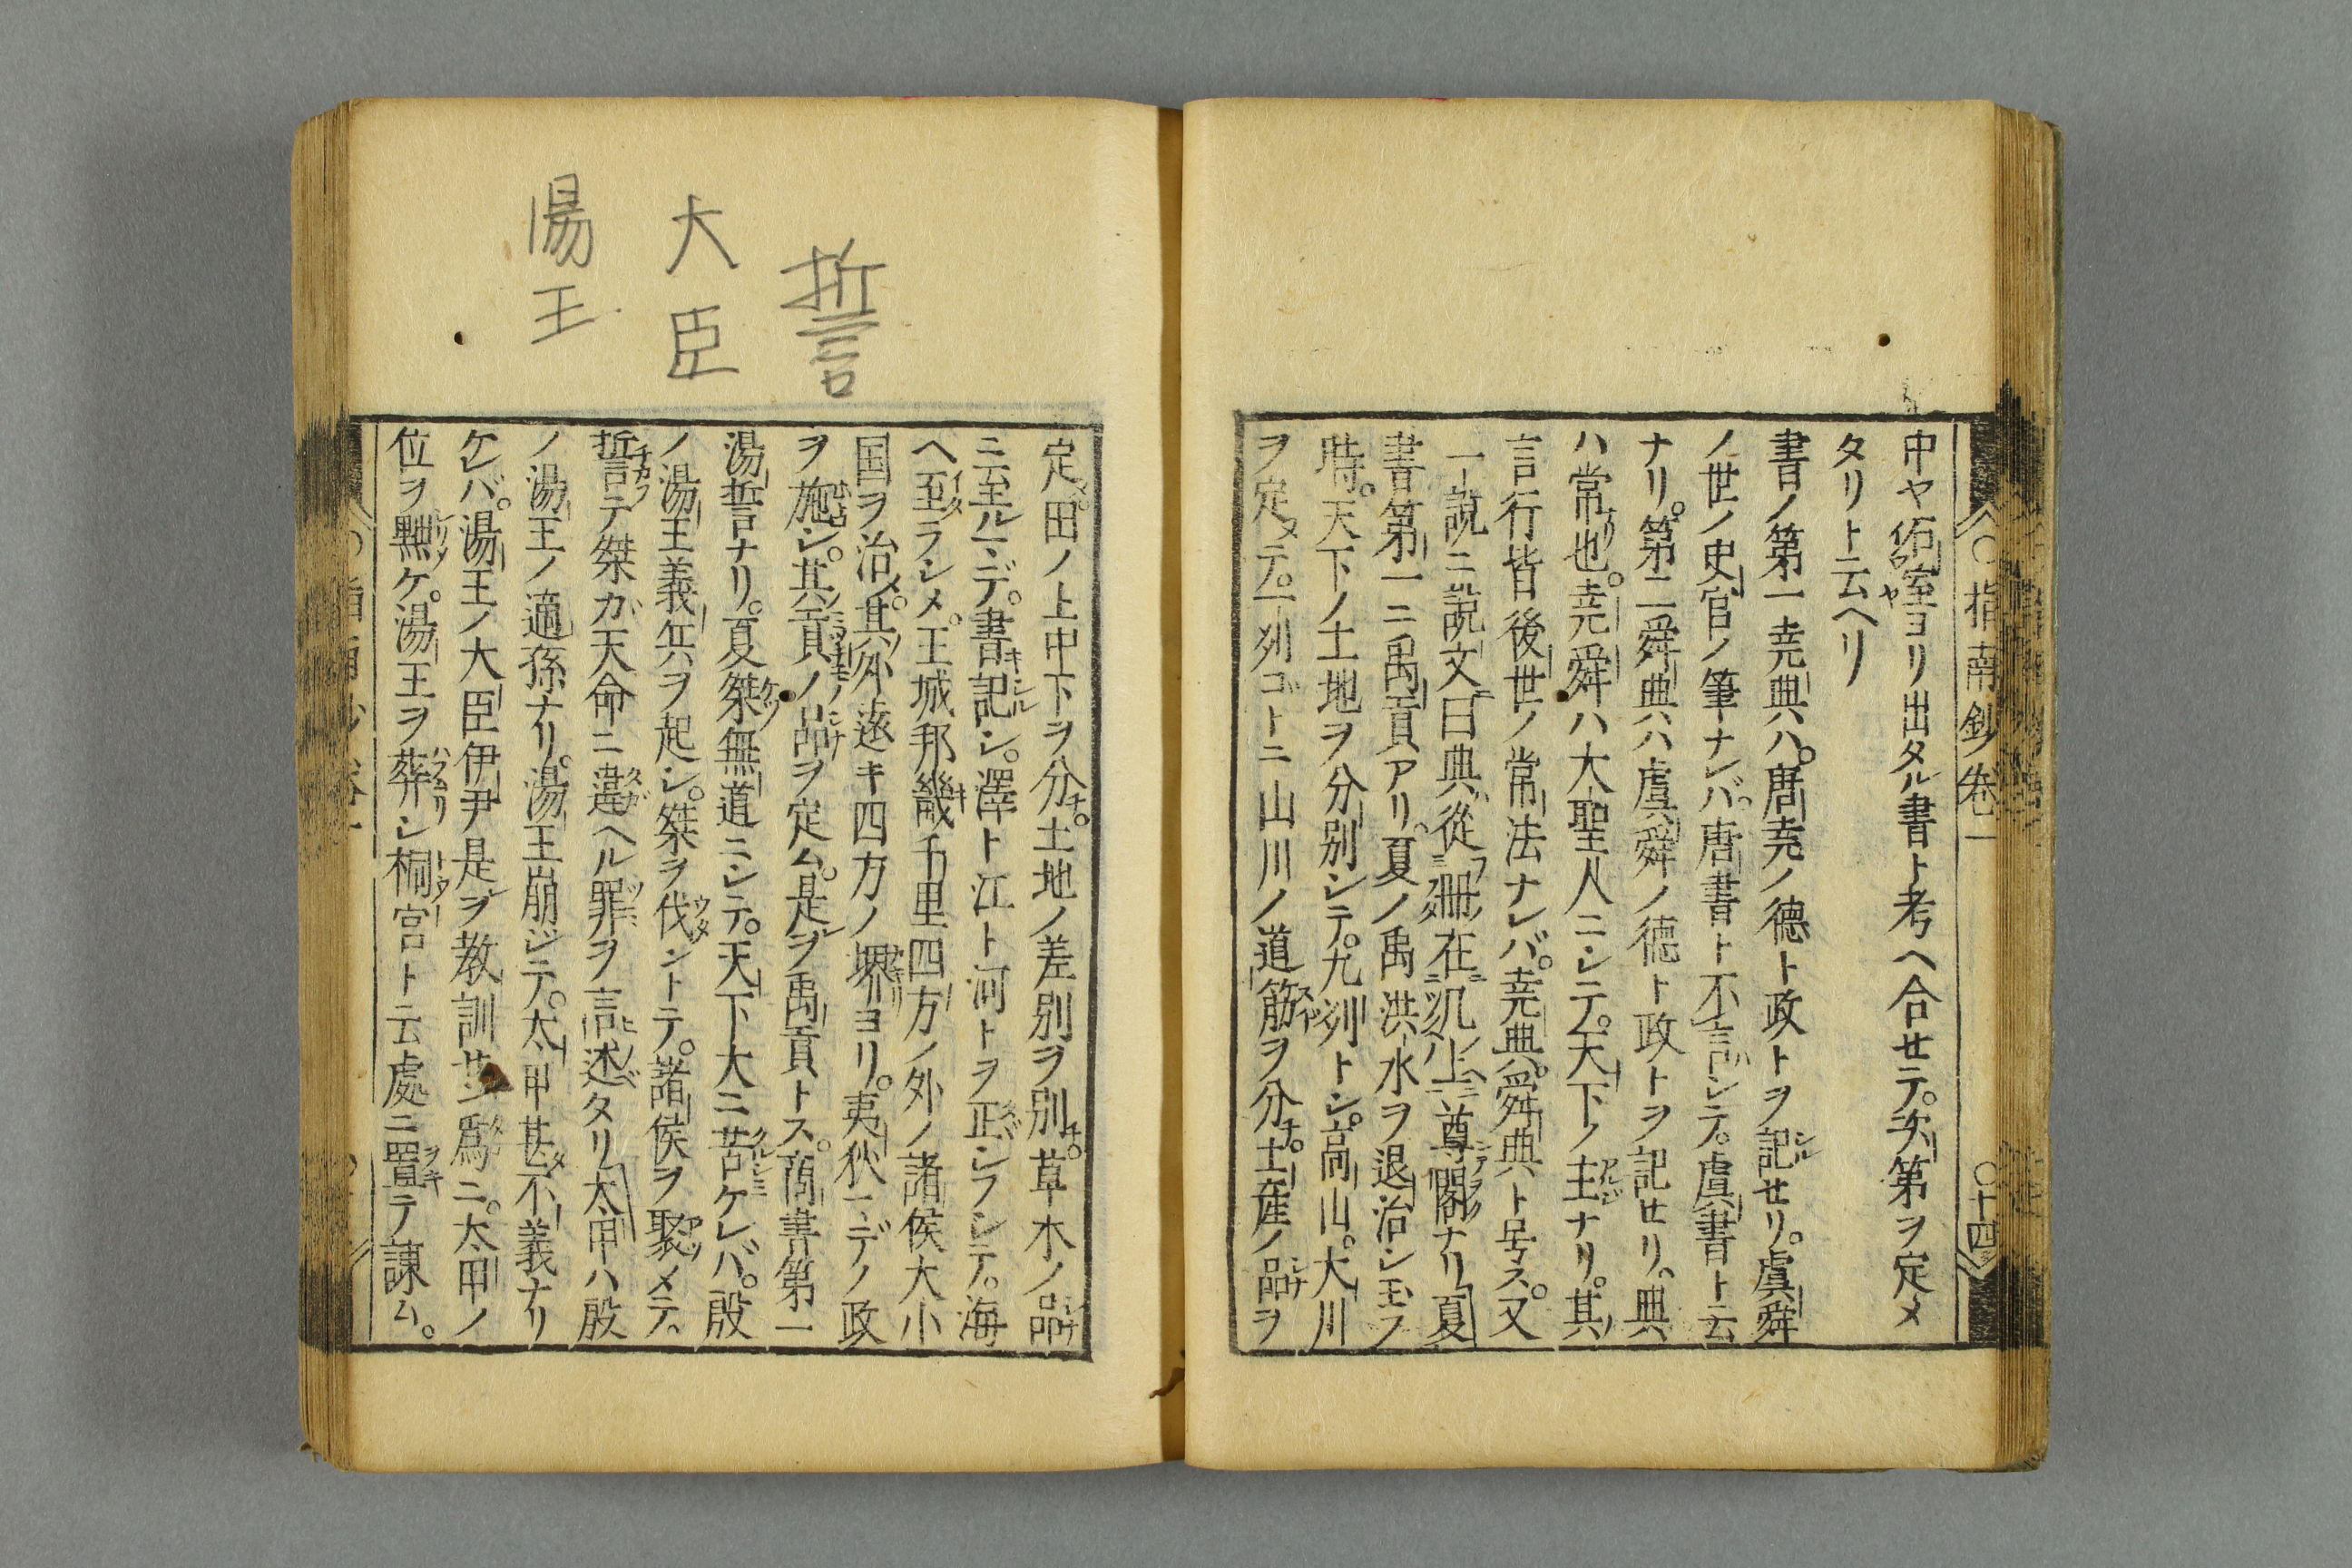 指南鈔卷一
〇十四
中ヤ石室ヨリ出タル書ト考ヘ合セテ。次第ヲ定メ
タリト云ヘリ
書ノ第一尭典ハ。唐尭ノ德ト政トヲ記セリ。虞舜
ノ世ノ史官ノ筆ナレバ。唐書ト不言シテ。虞書ト云
ナリ。第二舜典ハ虞舜ノ德ト政トヲ記セリ。典
ハ常也。尭舜ハ大聖人ニシテ。天下ノ主ナリ。其
言行皆後世ノ常法ナレバ。尭典。舜典ト号ス。又
一說ニ說文曰典從冊在丌上尊閣ナリ夏
書第一ニ禹貢アリ。夏ノ禹洪水ヲ退治シ玉フ
時。天下ノ土地ヲ分別シテ。九列トシ。高山。大川
ヲ定メテ。一列ゴトニ山川ノ道筋ヲ分チ。土産ノ品ヲ
誓
大臣
湯王
定。田ノ上中下ヲ分チ。土地ノ差別ヲ別チ。草木ノ品
ニ至ルマデ。書記シ。澤ト江ト河トヲ正シフシテ。海
ヘ至ラシメ。王城邦畿千里四方ノ外ノ諸侯大小
国ヲ治メ。其外遠キ四方ノ堺ヨリ。夷狄マデノ政
ヲ施シ。其貢ノ品ヲ定ム。是ヲ禹貢トス。商書第一
湯誓ナリ。夏桀無道ニシテ。天下大ニ苦ケレバ。殷
ノ湯王義兵ヲ起シ。桀ヲ伐ントテ。諸侯ヲ聚メテ。
誓テ桀ガ天命ニ違ヘル罪ヲ言述タリ太甲ハ殷
ノ湯王ノ適孫ナリ。湯王崩ジテ。太甲甚不義ナリ
ケレバ。湯王ノ大臣伊尹是ヲ教訓セン為ニ。太甲ノ
位ヲ黜ケ。湯王ヲ葬シ桐宮ト云處ニ置テ諫ム。